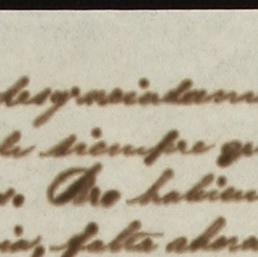 desgraciadam
siempre qu
s. Pero habien
ia, falta ahora